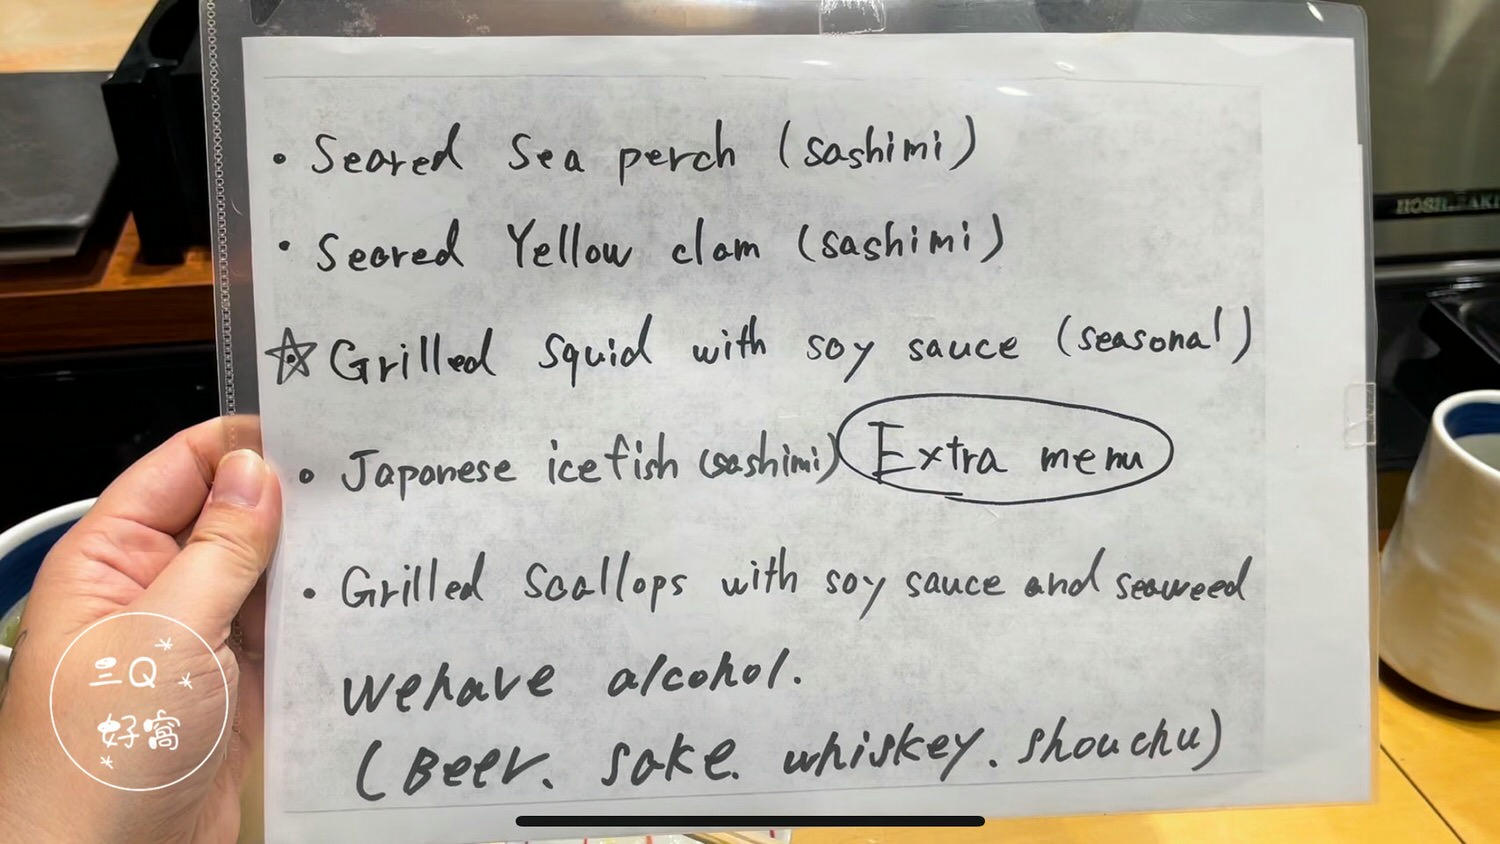 ・Seared Sea perch (sashimi)
・Seared Yellow clam (sashimi)
☆Grilled squid with soy sauce (seasonal)
・Japanese icefish (sashimi) Extra menu
・Grilled Scallops with soy sauce and seaweed
We have alcohol.
(Beer、sake、whiskey、shouchu)
HOSHIZAKI
三Q
好窩